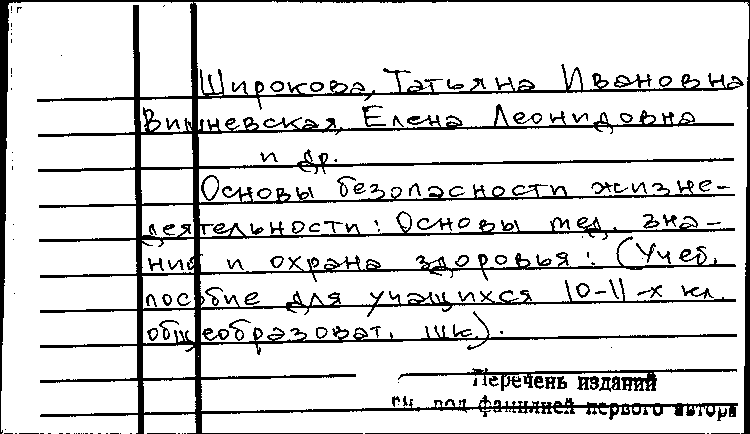 Широкова, Татьяна Ивановна
Вишневская, Елена Леонидовна
и др.
Основы безопасности жизне-
деятельности: Основы мед. зна-
ний и охрана здоровья: (Учеб.
пособие для учащихся 10-11-х кл.
общеобразоват. шк.).
Перечень изданий
см. под фамилией первого автора